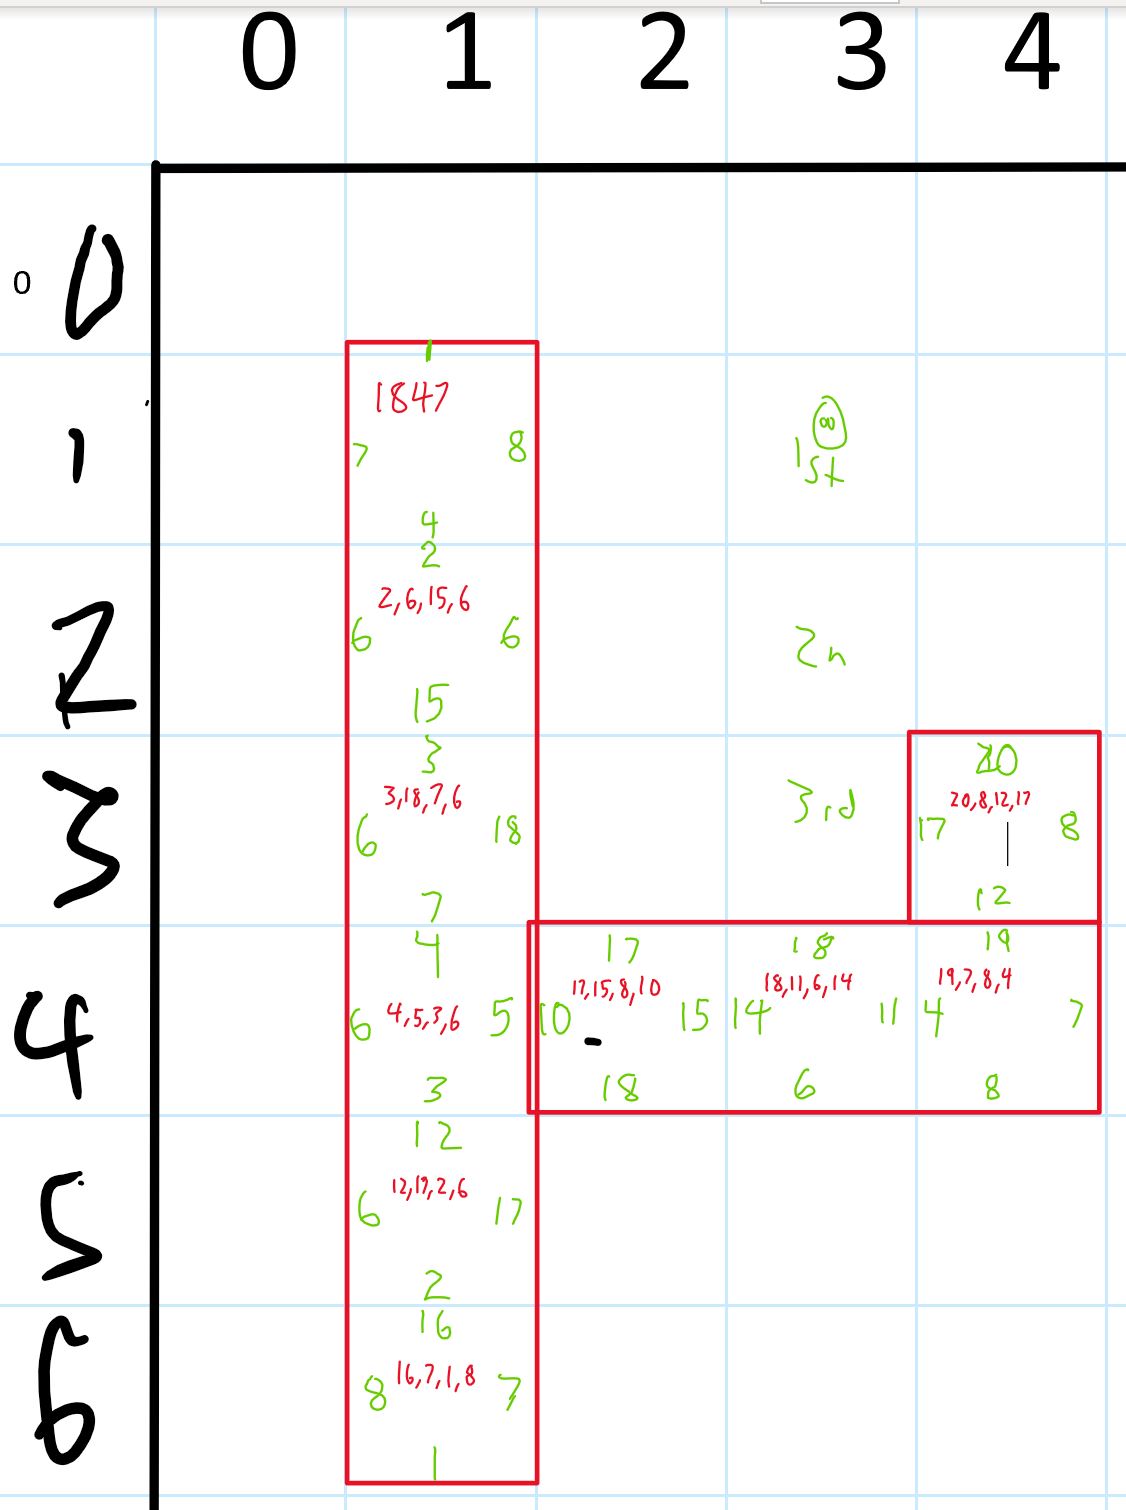 0 1 2 3 4
0 0
1
1847
7 8
4
1
1st
2
2
2,6,15,6
6 6
15
2n
3
3
3,18,7,6
6 18
7
3rd
20,8,12,17
17 8
12
4
4
4,5,3,6
6 5
3
17
17,15,8,10
10 15
18
18
18,11,6,14
14 11
6
19
19,7,8,4
4 7
8
5
12
12,17,2,6
6 17
2
6
16
16,7,1,8
8 7
1